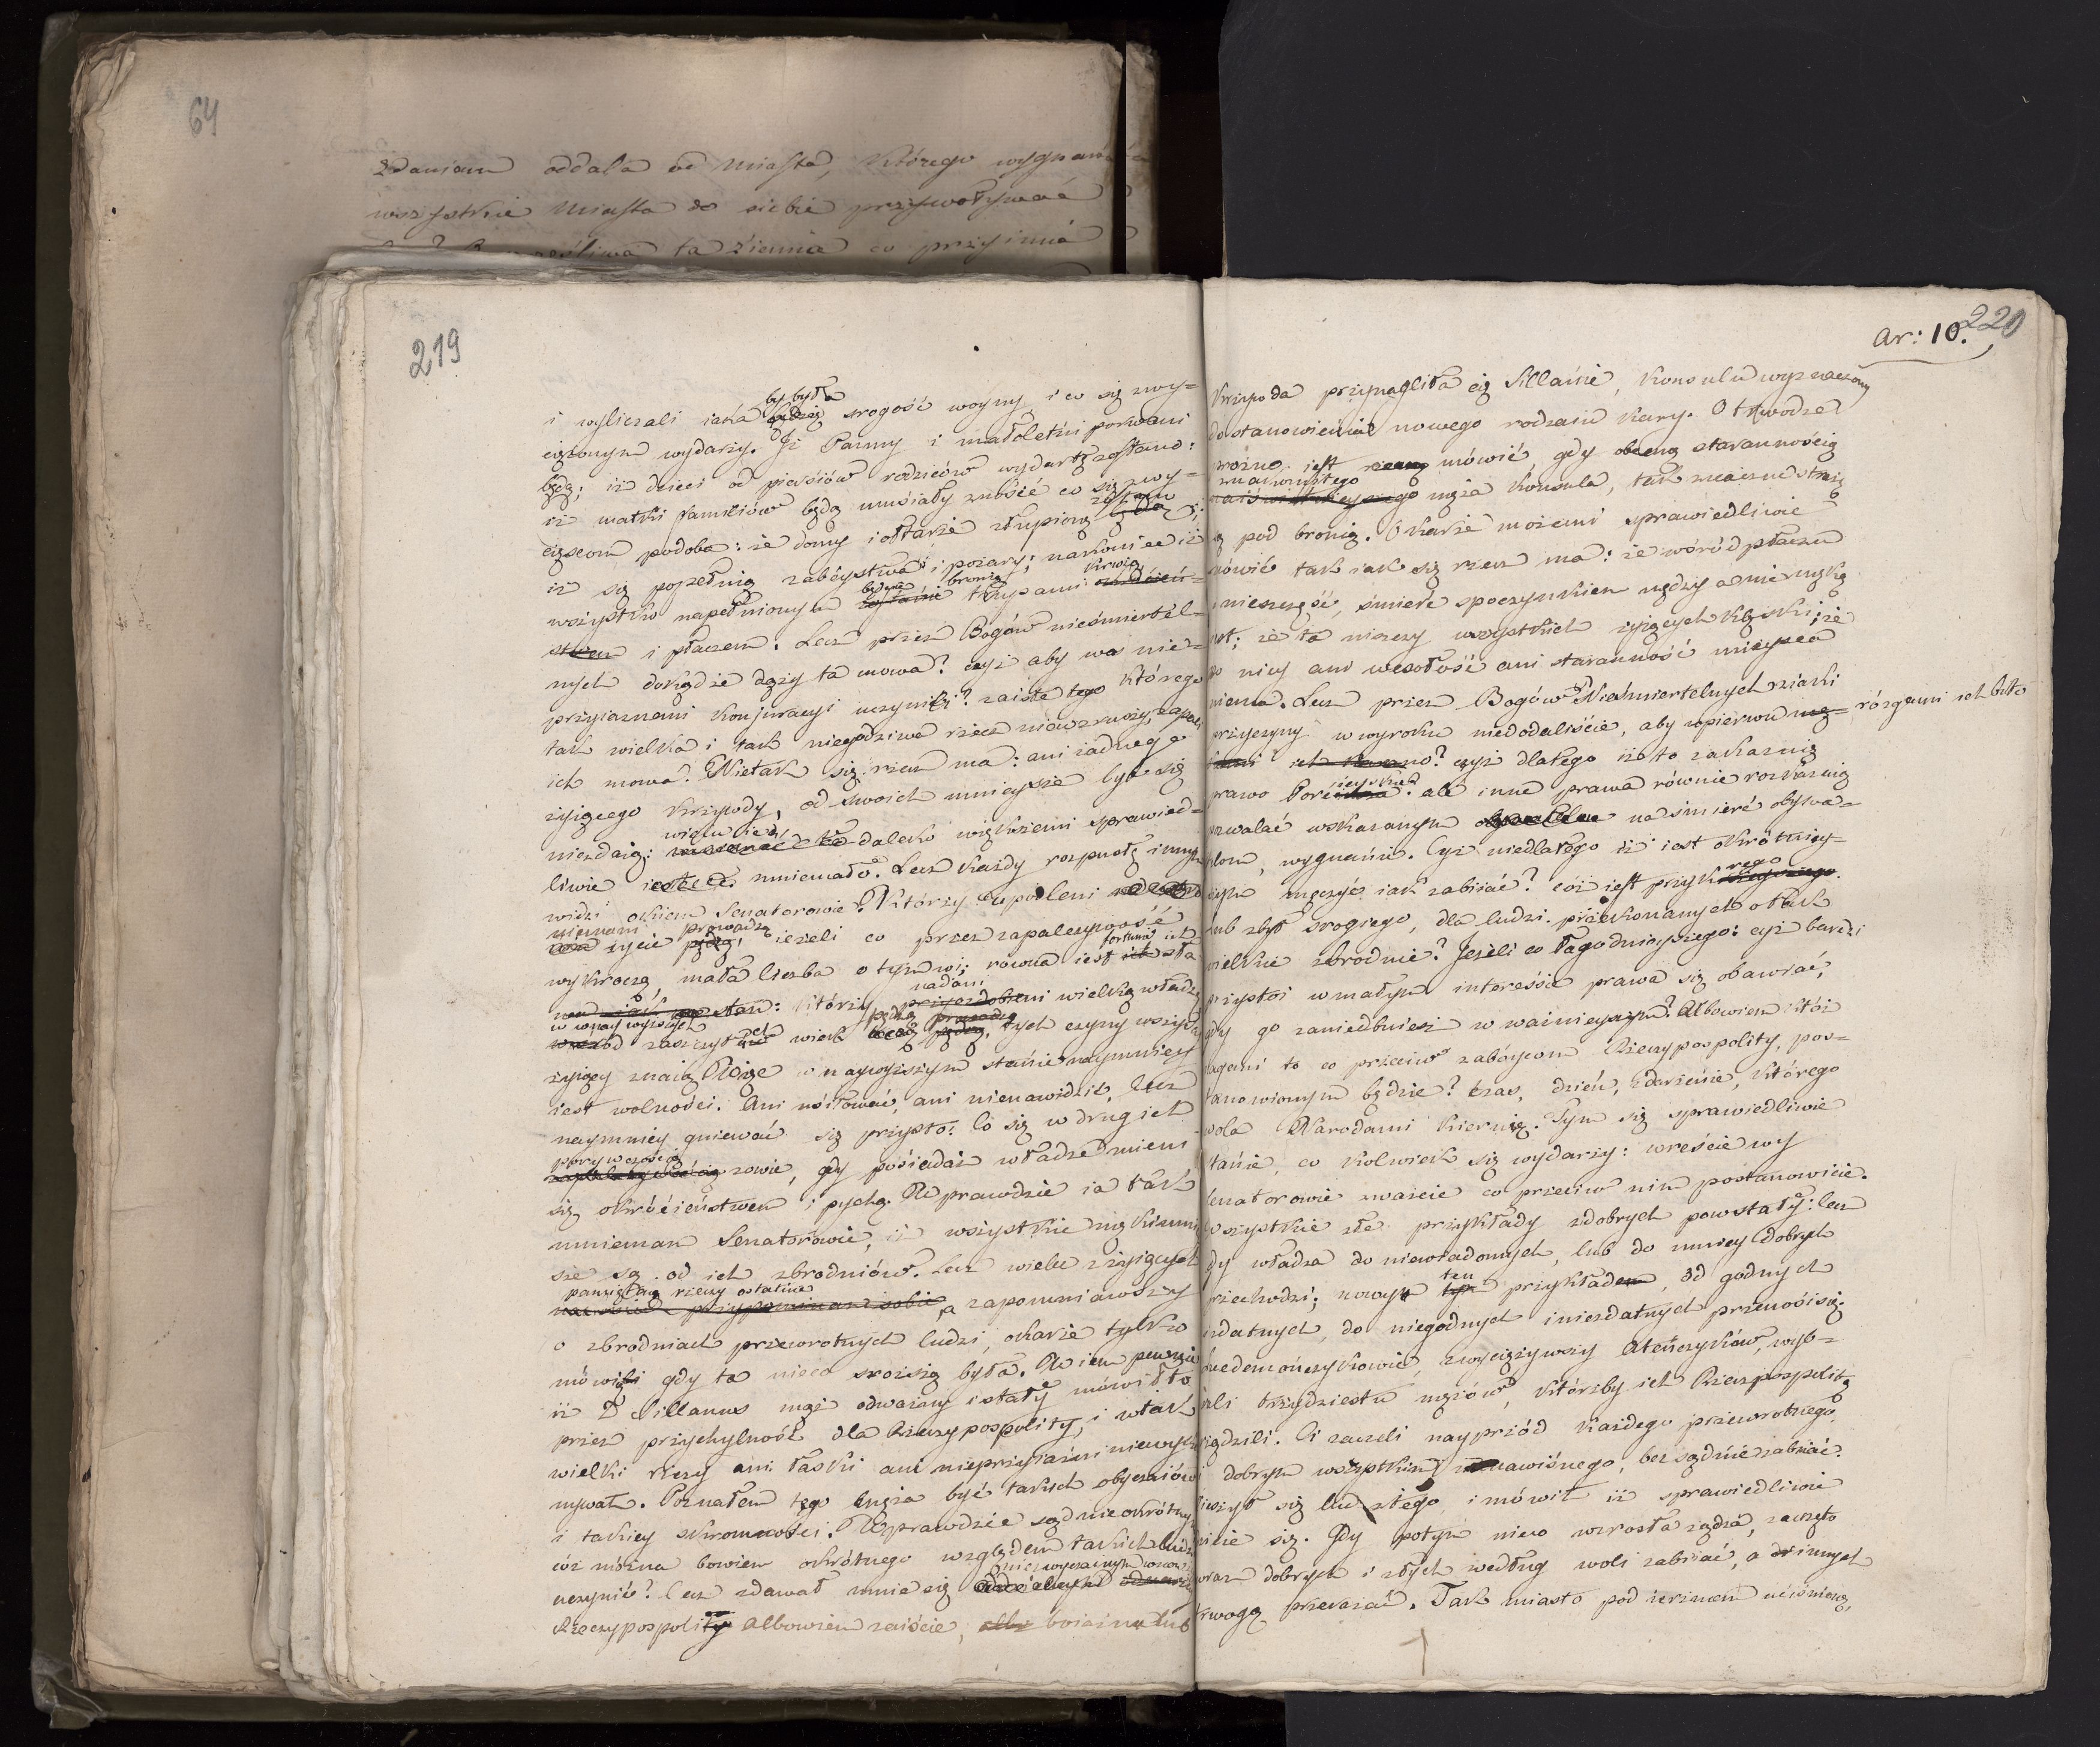 64
zdaniem oddala od Miasta, którego wygnań
wszystkie Miasta do siebie przywoływać
ta Ziemia co przyimie
219
by była
i wyliczali iaka srogość woyny i co się zwy=
ciężonym wydarzy. Iż Panny i małoletni porwani
będą; iż dzieci od piersiów rodziców wydarte zostano:
iż matki familiów będą musiały znosić co się zwy=
zostano
cięzcom podoba: że domy i ołtarze złupione będą;
iż się popełnią zabóystwa i pożary; nakoniec iż
będzie, bronią krwią
wszystko napełnionym trupami
i płaczem. Lecz przez Bogów nieśmiertel=
nych dokądże dąży ta mowa? czyż aby was nie=
przyiaznemi Konjuracyi uczynili? zaiste tego którego
tak wielka i tak niegodziwa rzecz niewzruszy, zapali
ich mowa. Nietak się rzecz ma: ani żadnego
żyiącego Krzywdy, od swoich mnieysze być się
niezdaią: wielu ie daleko większemi sprawied=
liwie mniemało. Lecz każdy rozpustę innym
widzi okiem Senatorowie. Którzy upodleni
mniemani prowadzą
życie pędzą, ieżeli co przez zapalczywość
fortuna ich
wykroczą, mała liczba o tym wi; równa iest sła
nadani
wa stan: którzy przyozdobieni wielką władzą
w wyższych pędzą
zaszczytach wiek tych czyny wszyscy
żyiący znaią. Więc w naywyższym stanie naymniey
iest wolności. Ani miłować, ani nienawidzić, lecz
naymniey gniewać się przysto: Co się w drugich
porywczością
zowie, gdy posiedaż władze mieni
się okrócieństwem i pychą. Wprawdzie ia tak
mnieman Senatorowie, iż wszystkie męki mniey
sze są od ich zbrodniów. Lecz wielu z żyiących
pamiętaią rzeczy ostatnie
przypominaż sobie, a zapomniawszy
o zbrodniach przewrotnych ludzi, okarze tylko
mówili gdy ta nieco sroższą była. Wiem pewnie
iż D Sillanus mąż odważny i stały mówił to
przez przychylność dla Rzeczypospolity, i w tak
wielki rzeczy ani łaski ani nieprzyiaźni niewyko
nywał. Poznałem tego męża być takich obyczaiów
i takiey skromności. Wprawdzie sąd nieokrótny
cóż można bowiem okrótnego względem takich ludzi
uczynić? lecz zdawał mnie się
Rzeczypospolity Albowiem zaiście, boiaźń lub
Ar: 10. 220
Krzywda przynagliła cię Sillanie, Konsulu wyznaczony
do stanowienia nowego rodzaiu kary. O trwodze
prożno iest mówić, gdy obecną starannością
znakomitego
męża Konsula, tak znaczne straże
są pod bronią. O karze możemi sprawiedliwie
mówić tak iak się rzecz ma: że wśród płaczu
i nieszczęść, śmierć spoczynkiem nędzy a nie męką
iest; że ta niszczy wszystkich żyiących klęski; że
po niey ani wesołość ani staranność mieysca
niema. Lecz przez Bogów Nieśmiertelnych z iaki
przyczyny w wyroku niedodaliście, aby wpierw rózgami ich bito
? czyż dlatego iż to zakazuią
prawo Porcyuszka? ale inne prawa równie rozkazuią
pozwalać wskazanym na śmierć obywa=
telom, wygnanie. Czyż niedlatego iż iest okrótniey=
szym męczyć iak zabiiać? cóż iest przykrego
lub zbyt srogiego, dla ludzi przekonanych o tak
wielkie zbrodnie? Jeżeli co łagodnieyszego: czyż bardzi
przystoi w małym interesie prawa się obawiać,
gdy go zaniedbniesz w ważnieyszym? Albowiem któż
nagani to co przeciw zabóycom Rzeczypospolity, pos=
tanowionym będzie? czas, dzień, zdarzenie, którego
wola Narodami kieruię. Tym się sprawiedliwie
stanie, co kolwiek się wydarzy: wreście wy
Senatorowie zważcie co przeciw nim postanowicie.
Wszystkie złe przykłady z dobrych powstały: lecz
gdy władza do niewiadomych, lub do mniey dobrych
przechodzi; nowy ten przykład, od godnych
i zdatnych, do niegodnych i niezdatnych przenosi się.
Lacedemończykowie, zwyciężywszy Ateńczyków, wyb=
rali trzydziestu mężów, którzyby ich Rzeczpospolitą
rządzili. Ci zaczeli nayprzód każdego przewrotnego,
i dobrym wszystkim nienawiśnego, bez sądu zabiiać.
cieszył się lud z tego i mówił iż sprawiedliwie
dzieie się. Gdy potym nieco wzrosła żądza, zaczęto
wraz dobrych i złych według woli zabiiać, a innych
trwogą przerażać. Tak miasto pod iarzmem uciśnione,